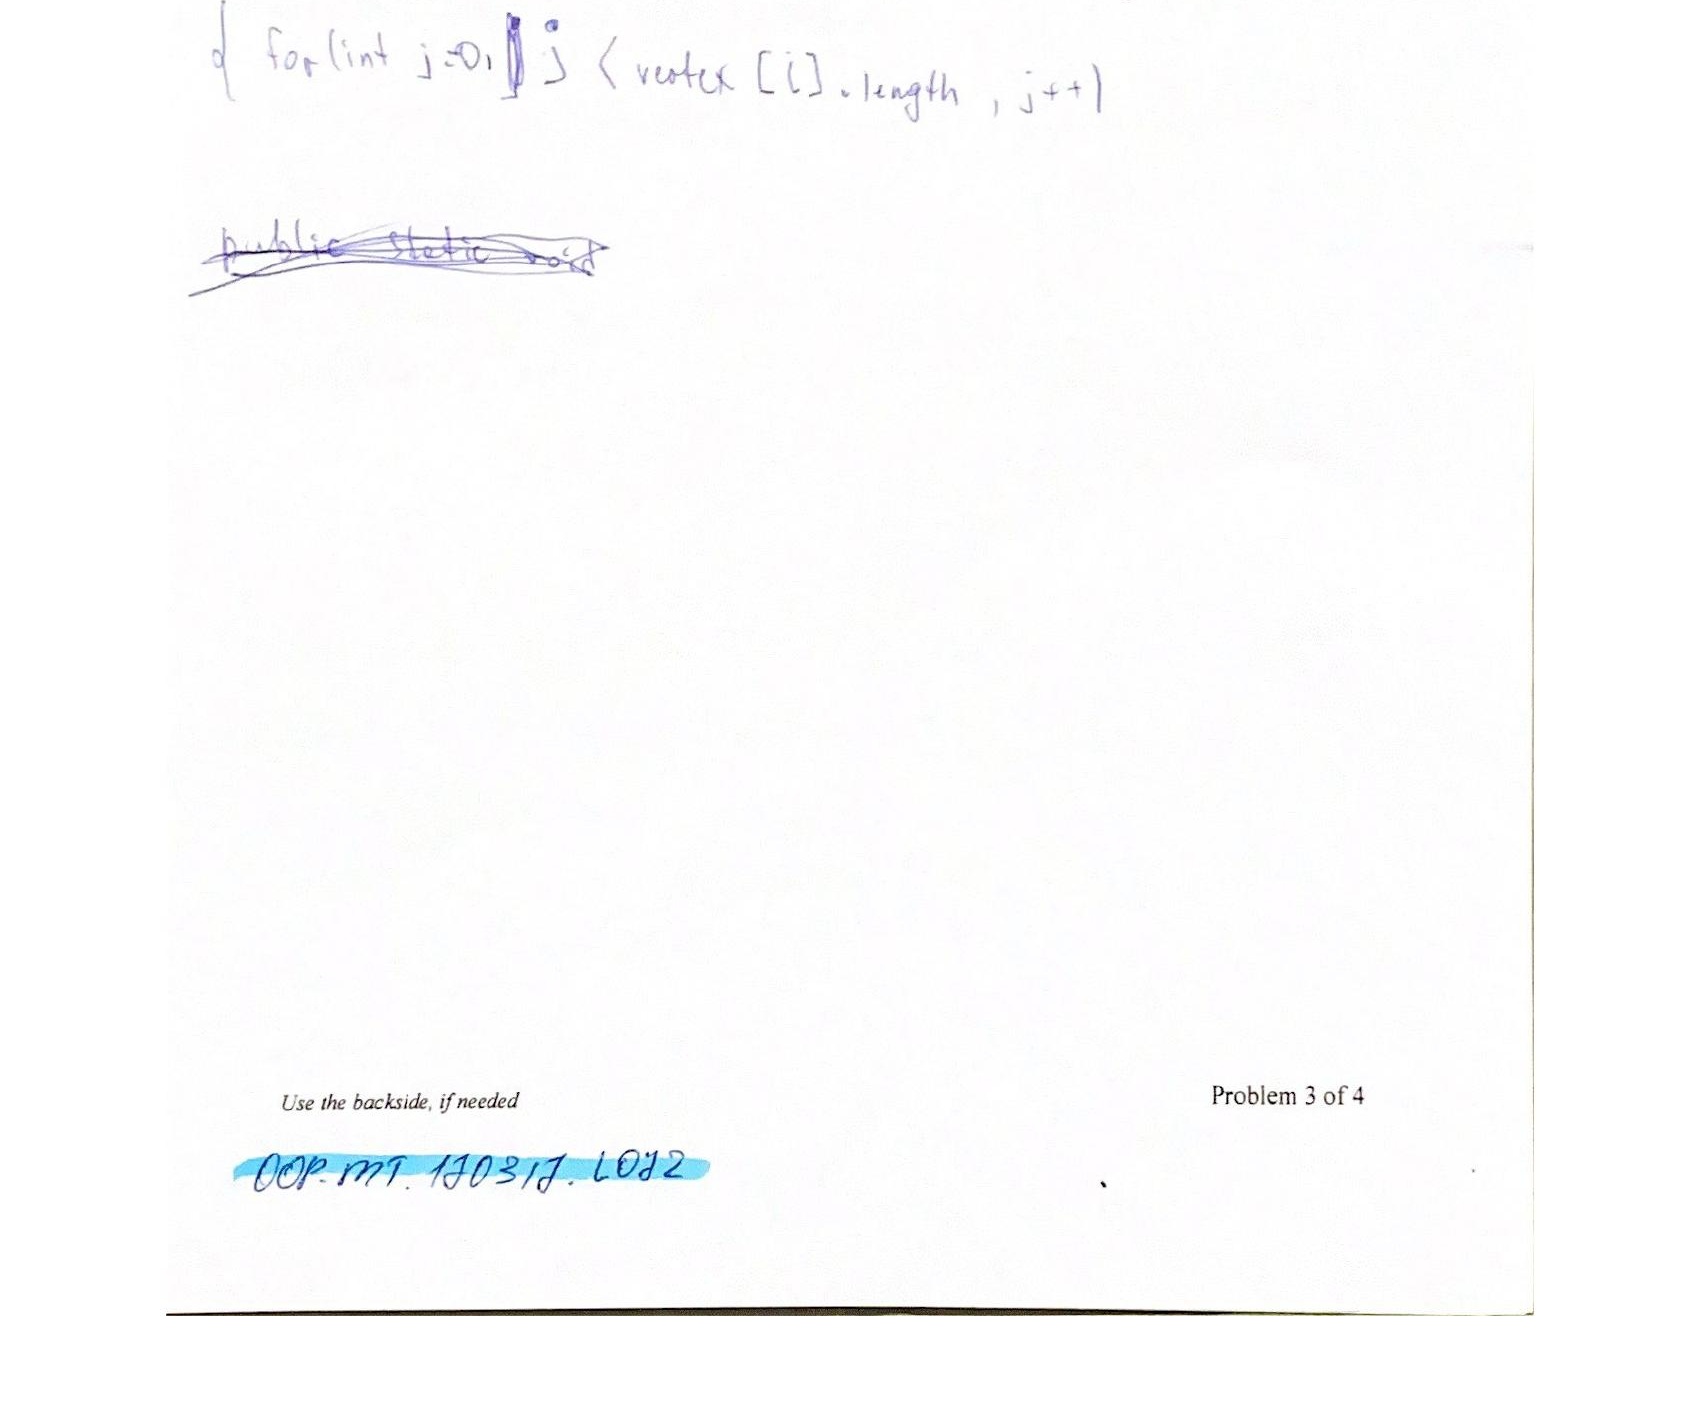 { for(int j=0, j < vertex [i].length , j++)
public static void
Use the backside, if needed
Problem 3 of 4
OOP. MT. 170317. L072